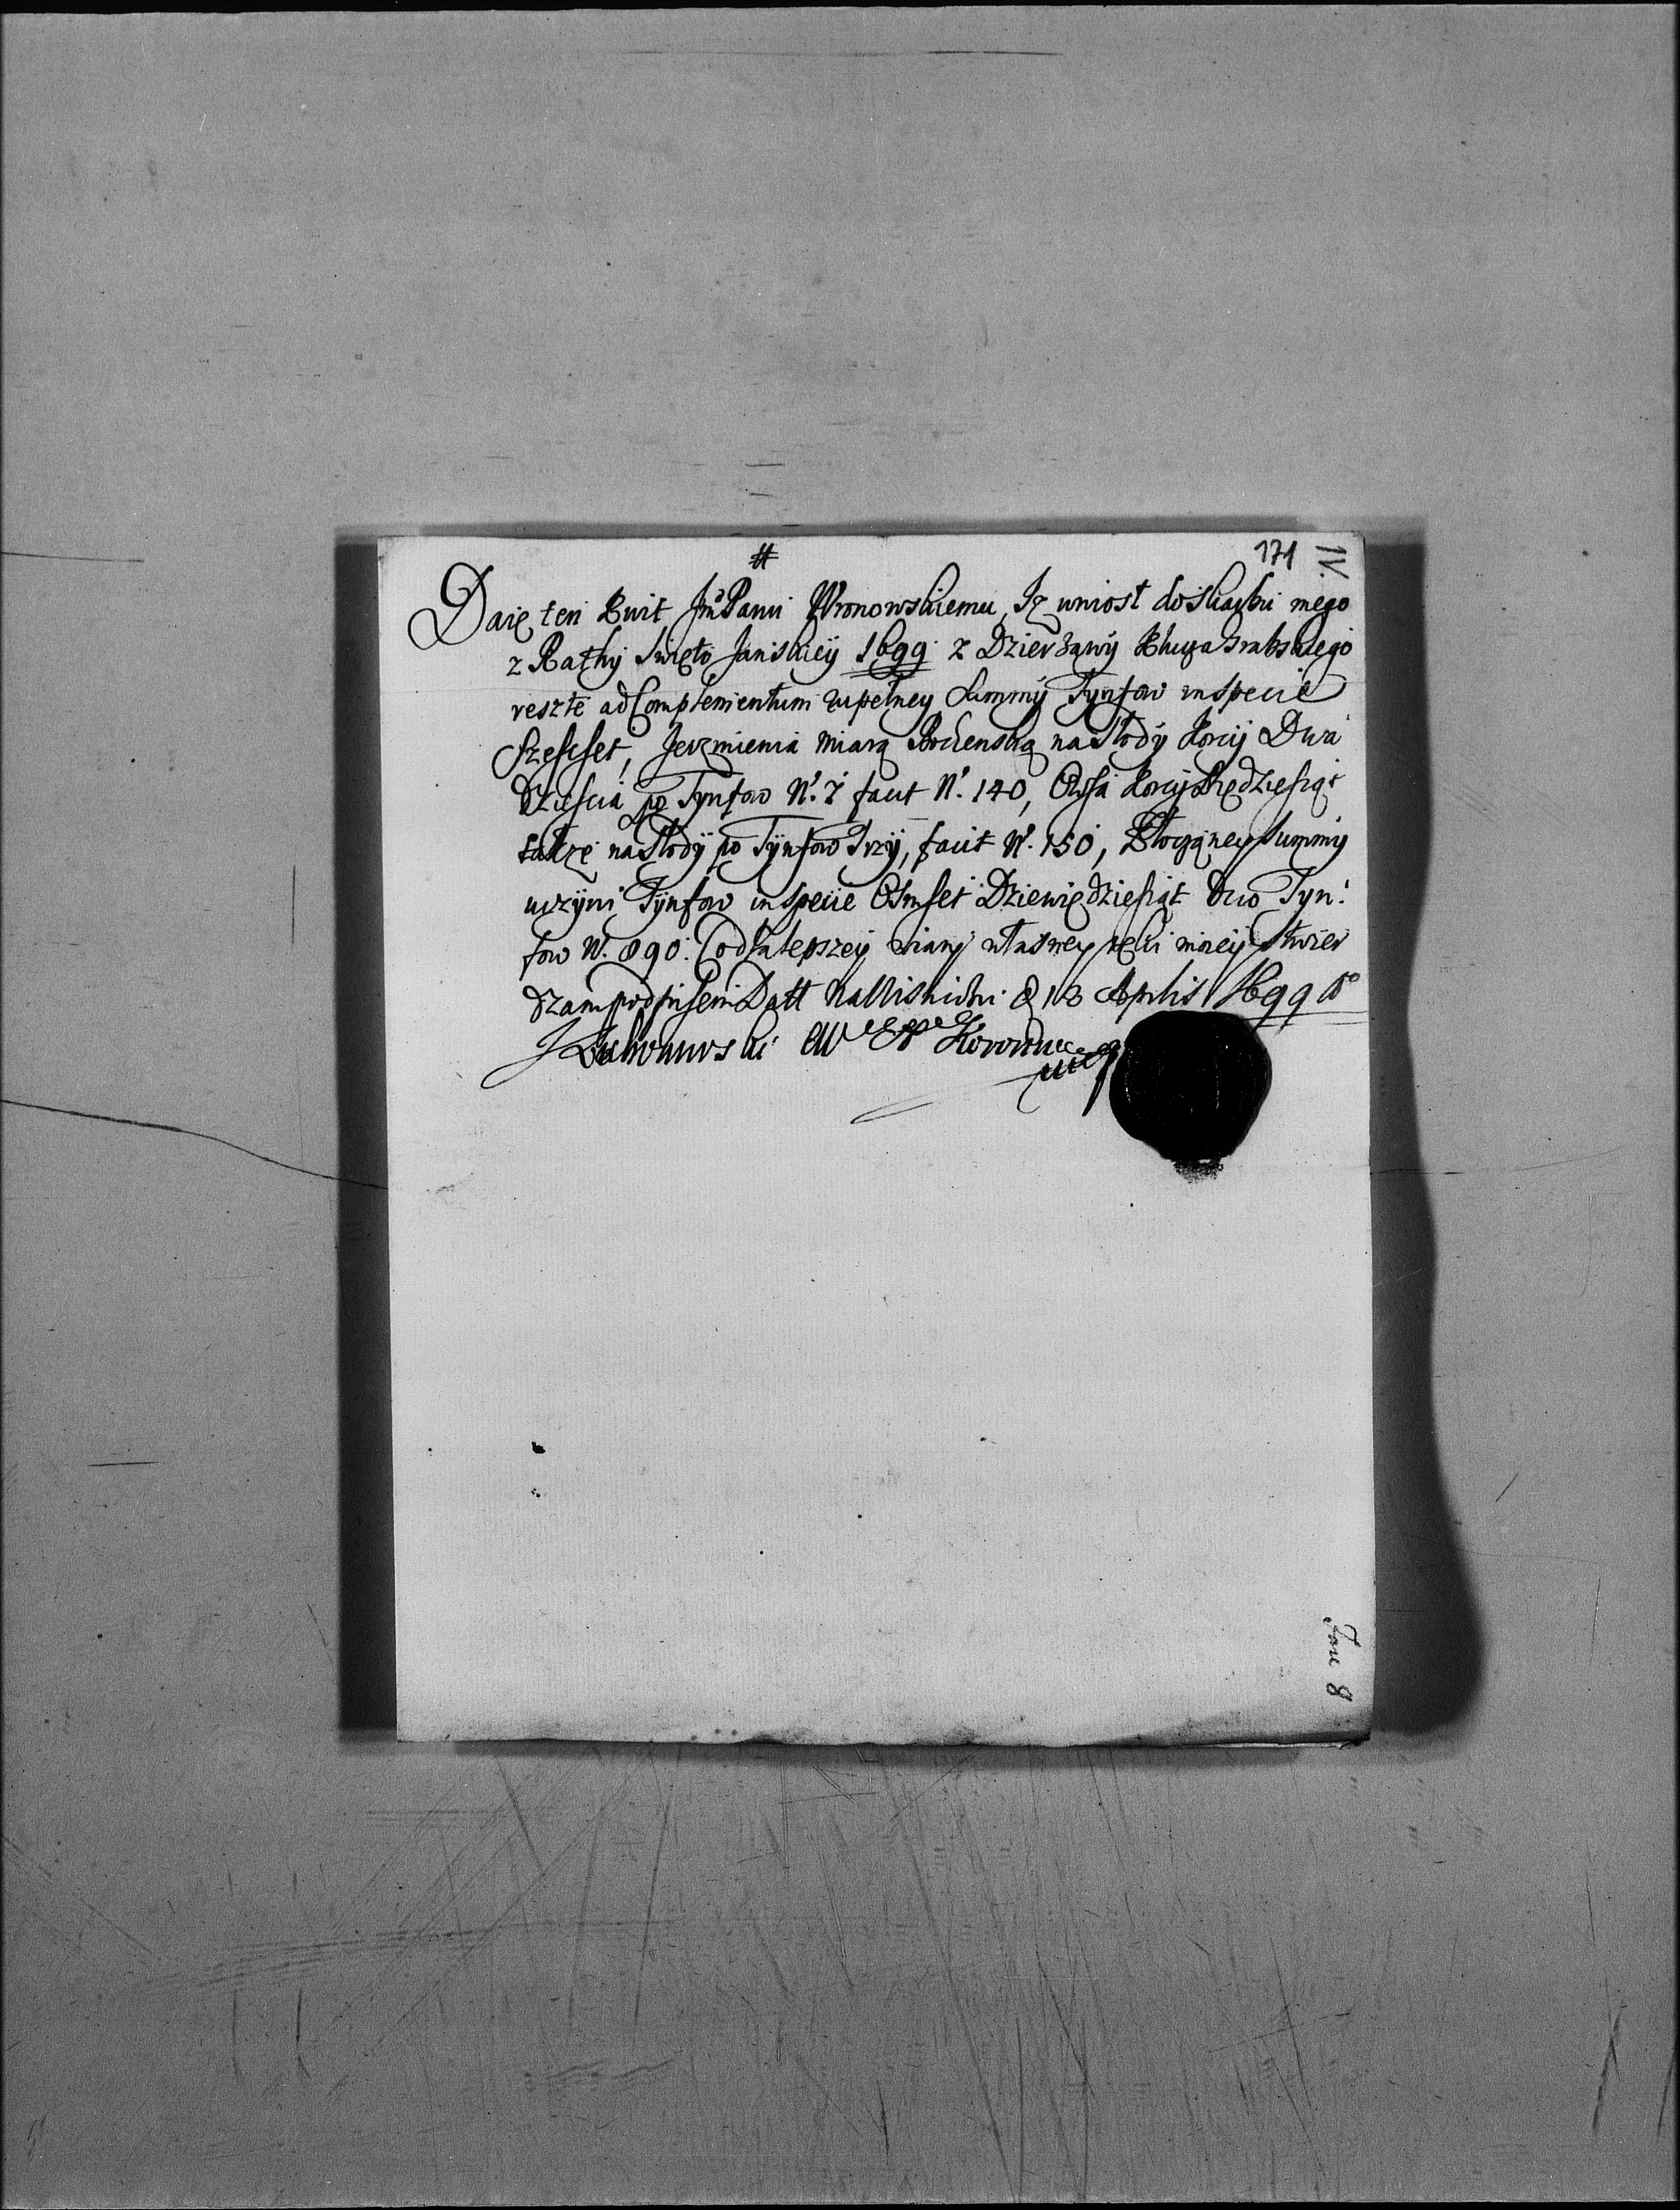 #
171
IV.
Daię ten Kwit JmPanu Wronowskiemu, Iz wniosł do Skarbu mego
z Rathy Swięto Janskiey 1699 z Dzierżawy Klucza Grabskiego
resztę ad Complementum zupełney Summy Tynfow in specie
Szescset, Jęczmienia miarą na Słody Korcy Dwa
dziescia po Tynfow N. 7 facit N. 140, Owsa Korcy Pięcdziesiąt
także na Słody po Tynfow Trzy, facit N. 150, Złoczoney Summy
uczyni Tynfow in specie Osmset Dziewiędziesiąt Tyn:
fow N. 890: Co dla lepszey wiary własney ręki moiey Ztwier
dzam podpisem Datt D 13 Aprilis 1699 Ao
JLubomirski WK Koronny
mp
Fasc 8